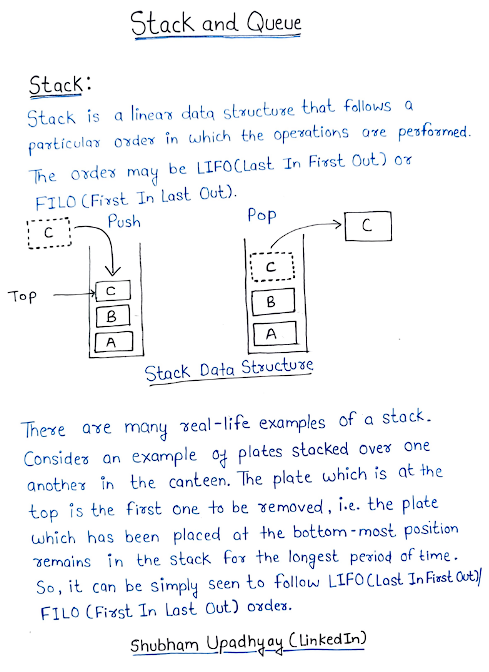 Stack and Queue
Stack:
Stack is a linear data structure that follows a
particular order in which the operations are performed.
The order may be LIFO(Last In First Out) or
FILO (First In Last Out).
Push
Pop
C
C
Top
C
B
A
C
B
A
Stack Data Structure
There are many real-life examples of a stack.
Consider an example of plates stacked over one
another in the canteen. The plate which is at the
top is the first one to be removed, i.e. the plate
which has been placed at the bottom-most position
remains in the stack for the longest period of time.
So, it can be simply seen to follow LIFO(Last In First Out)/
FILO (First In Last Out) order.
Shubham Upadhyay (LinkedIn)